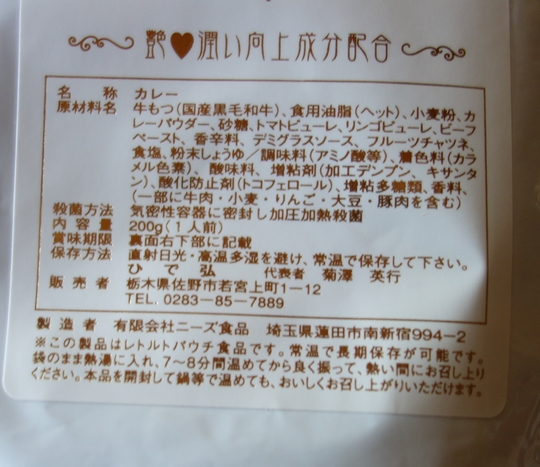 艶♥潤い向上成分配合
名称 カレー
原材料名 牛もつ(国産黒毛和牛)、食用油脂(ヘット)、小麦粉、カ
レーパウダー、砂糖、トマトピューレ、リンゴピューレ、ビーフ
ペースト、香辛料、デミグラスソース、フルーツチャツネ、
食塩、粉末しょうゆ/調味料(アミノ酸等)、着色料(カラ
メル色素)、酸味料、増粘剤(加工デンプン、キサンタ
ン)、酸化防止剤(トコフェロール)、増粘多糖類、香料、
(一部に牛肉・小麦・りんご・大豆・豚肉を含む)
殺菌方法 気密性容器に密封し加圧加熱殺菌
内容量 200g(1人前)
賞味期限 裏面右下部に記載
保存方法 直射日光・高温多湿を避け、常温で保存して下さい。
ひで弘 代表者 菊澤 英行
販売者 栃木県佐野市若宮上町1-12
TEL. 0283-85-7889
製造者 有限会社ニーズ食品 埼玉県蓮田市南新宿994-2
※この製品はレトルトパウチ食品です。常温で長期保存が可能です。
袋のまま熱湯に入れ、7〜8分間温めてから良く振って、熱い間にお召し上り
ください。本品を開封して鍋等で温めても、おいしくお召し上がりいただけます。